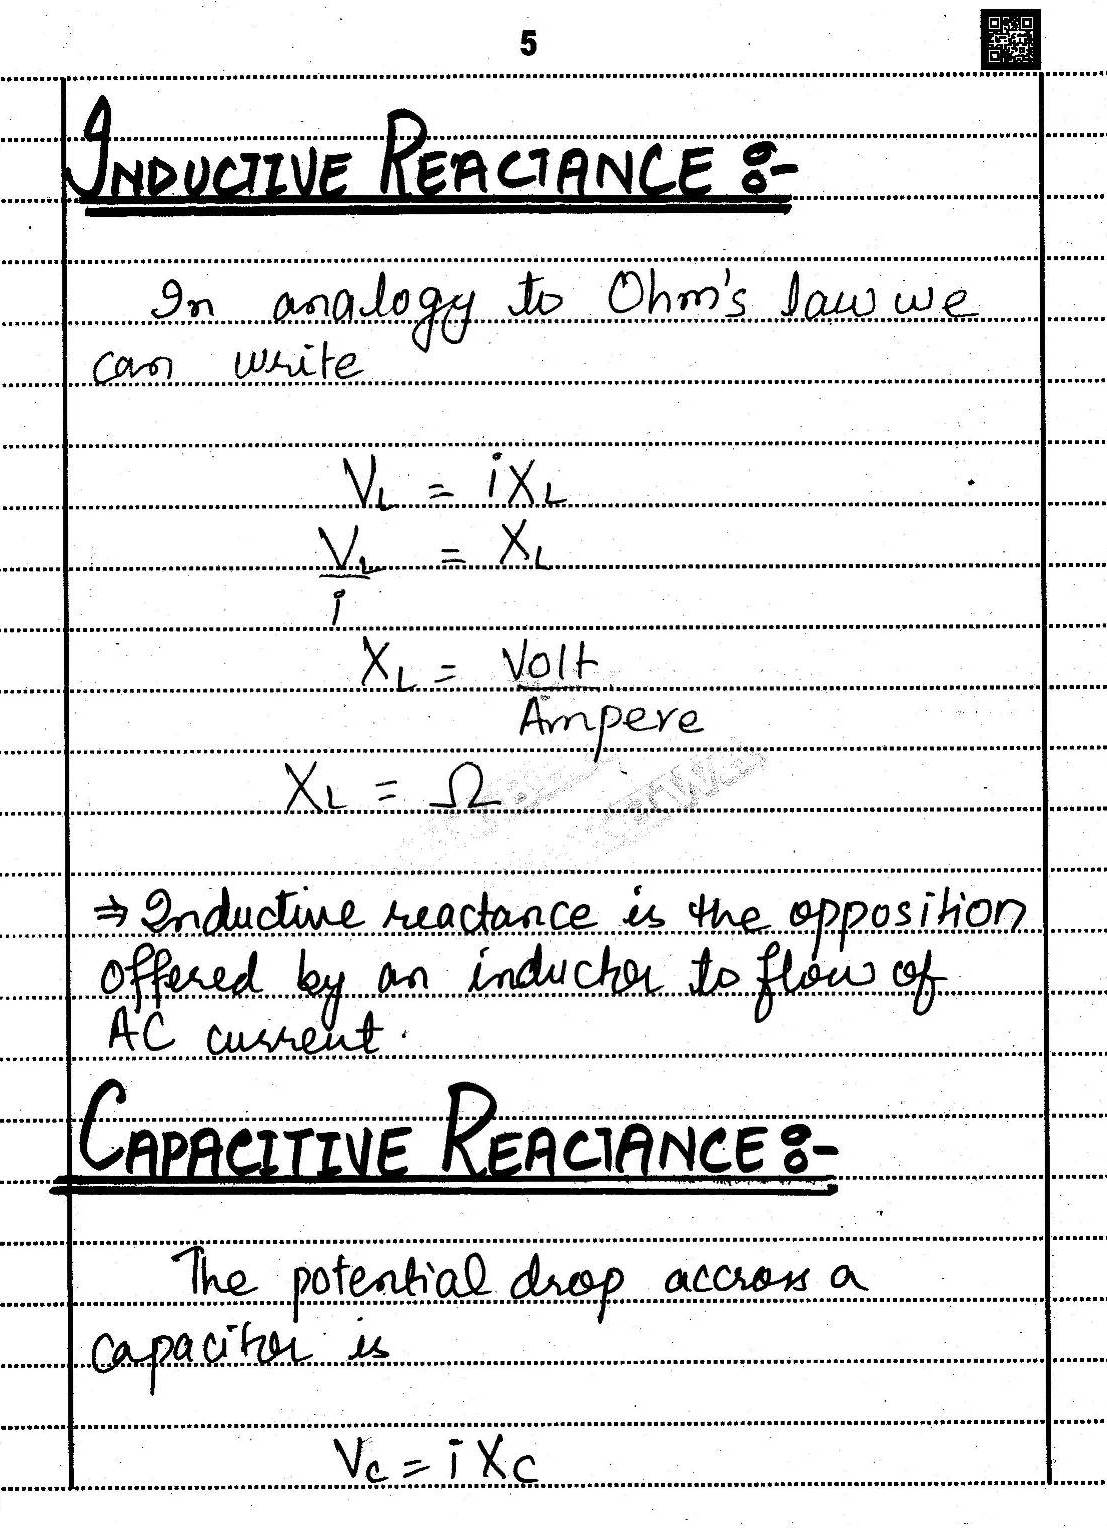 5
INDUCTIVE REACTANCE :-
In analogy to Ohm's law we
can write
V_L = iX_L
V_L/i = X_L
X_L = Volt/Ampere
X_L = Ω
⇒ Inductive reactance is the opposition
offered by an inductor to flow of
AC current.
CAPACITIVE REACTANCE :-
The potential drop accross a
capacitor is
V_C = i X_C